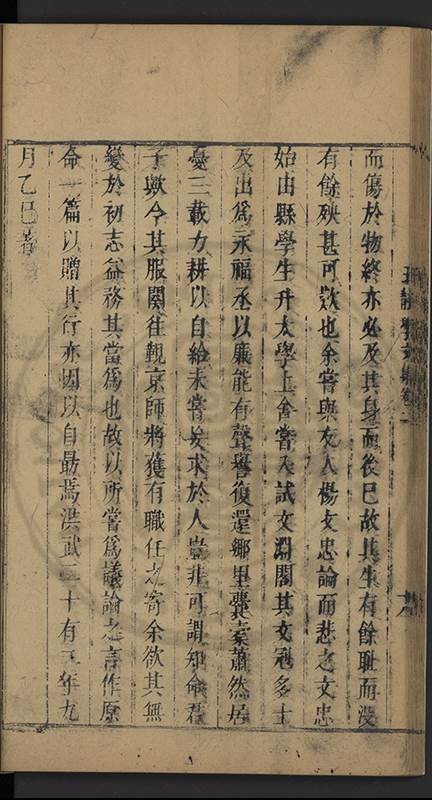 而傷於物終亦必及其身而後已故其生有餘耻而沒
有餘殃甚可歎也余嘗與友人楊文忠論而悲之文忠
始由縣學生升太學上舍嘗入試文淵閣其文冠多士
及出為永福丞以廉能有聲譽復還鄉里囊橐蕭然居
憂三載力耕以自給未嘗妄求於人豈非可謂知命君
子歟今其服闋往覲京師將獲有職任之寄余欲其無
變於初志益務其當為也故以所嘗為議論之言作原
命一篇以贈其行亦因以自勗焉洪武三十有三年九
月乙巳